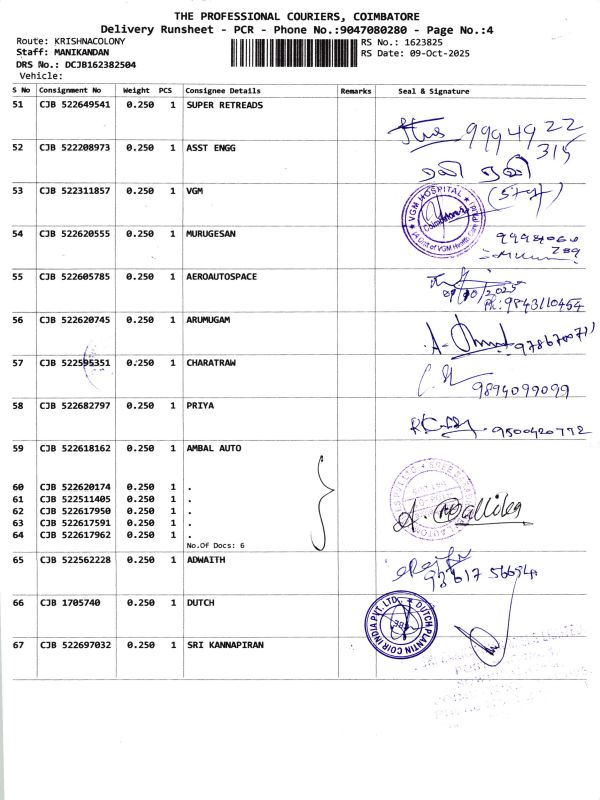 THE PROFESSIONAL COURIERS, COIMBATORE
Delivery Runsheet - PCR - Phone No.:9047080280 - Page No.:4
Route: KRISHNACOLONY
Staff: MANIKANDAN
DRS No.: DCJB162382504
Vehicle:
RS No.: 1623825
RS Date: 09-Oct-2025
S No Consignment No Weight PCS Consignee Details Remarks Seal & Signature
51 CJB 522649541 0.250 1 SUPER RETREADS
9994922
315
52 CJB 522208973 0.250 1 ASST ENGG
53 CJB 522311857 0.250 1 VGM
VGM HOSPITAL
Coimbatore
54 CJB 522620555 0.250 1 MURUGESAN
789
55 CJB 522605785 0.250 1 AEROAUTOSPACE
09/10/2025
Ph: 9843110454
56 CJB 522620745 0.250 1 ARUMUGAM
57 CJB 522595351 0.250 1 CHARATRAW
9894099099
58 CJB 522682797 0.250 1 PRIYA
9500420772
59 CJB 522618162 0.250 1 AMBAL AUTO
60 CJB 522620174 0.250 1 .
61 CJB 522511405 0.250 1 .
62 CJB 522617950 0.250 1 .
63 CJB 522617591 0.250 1 .
64 CJB 522617962 0.250 1 .
No.Of Docs: 6
A. Mallika
65 CJB 562228 0.250 1 ADWAITH
66 CJB 1705740 0.250 1 DUTCH
DUTCH PLANTIN COIR INDIA PVT. LTD.
67 CJB 522697032 0.250 1 SRI KANNAPIRAN